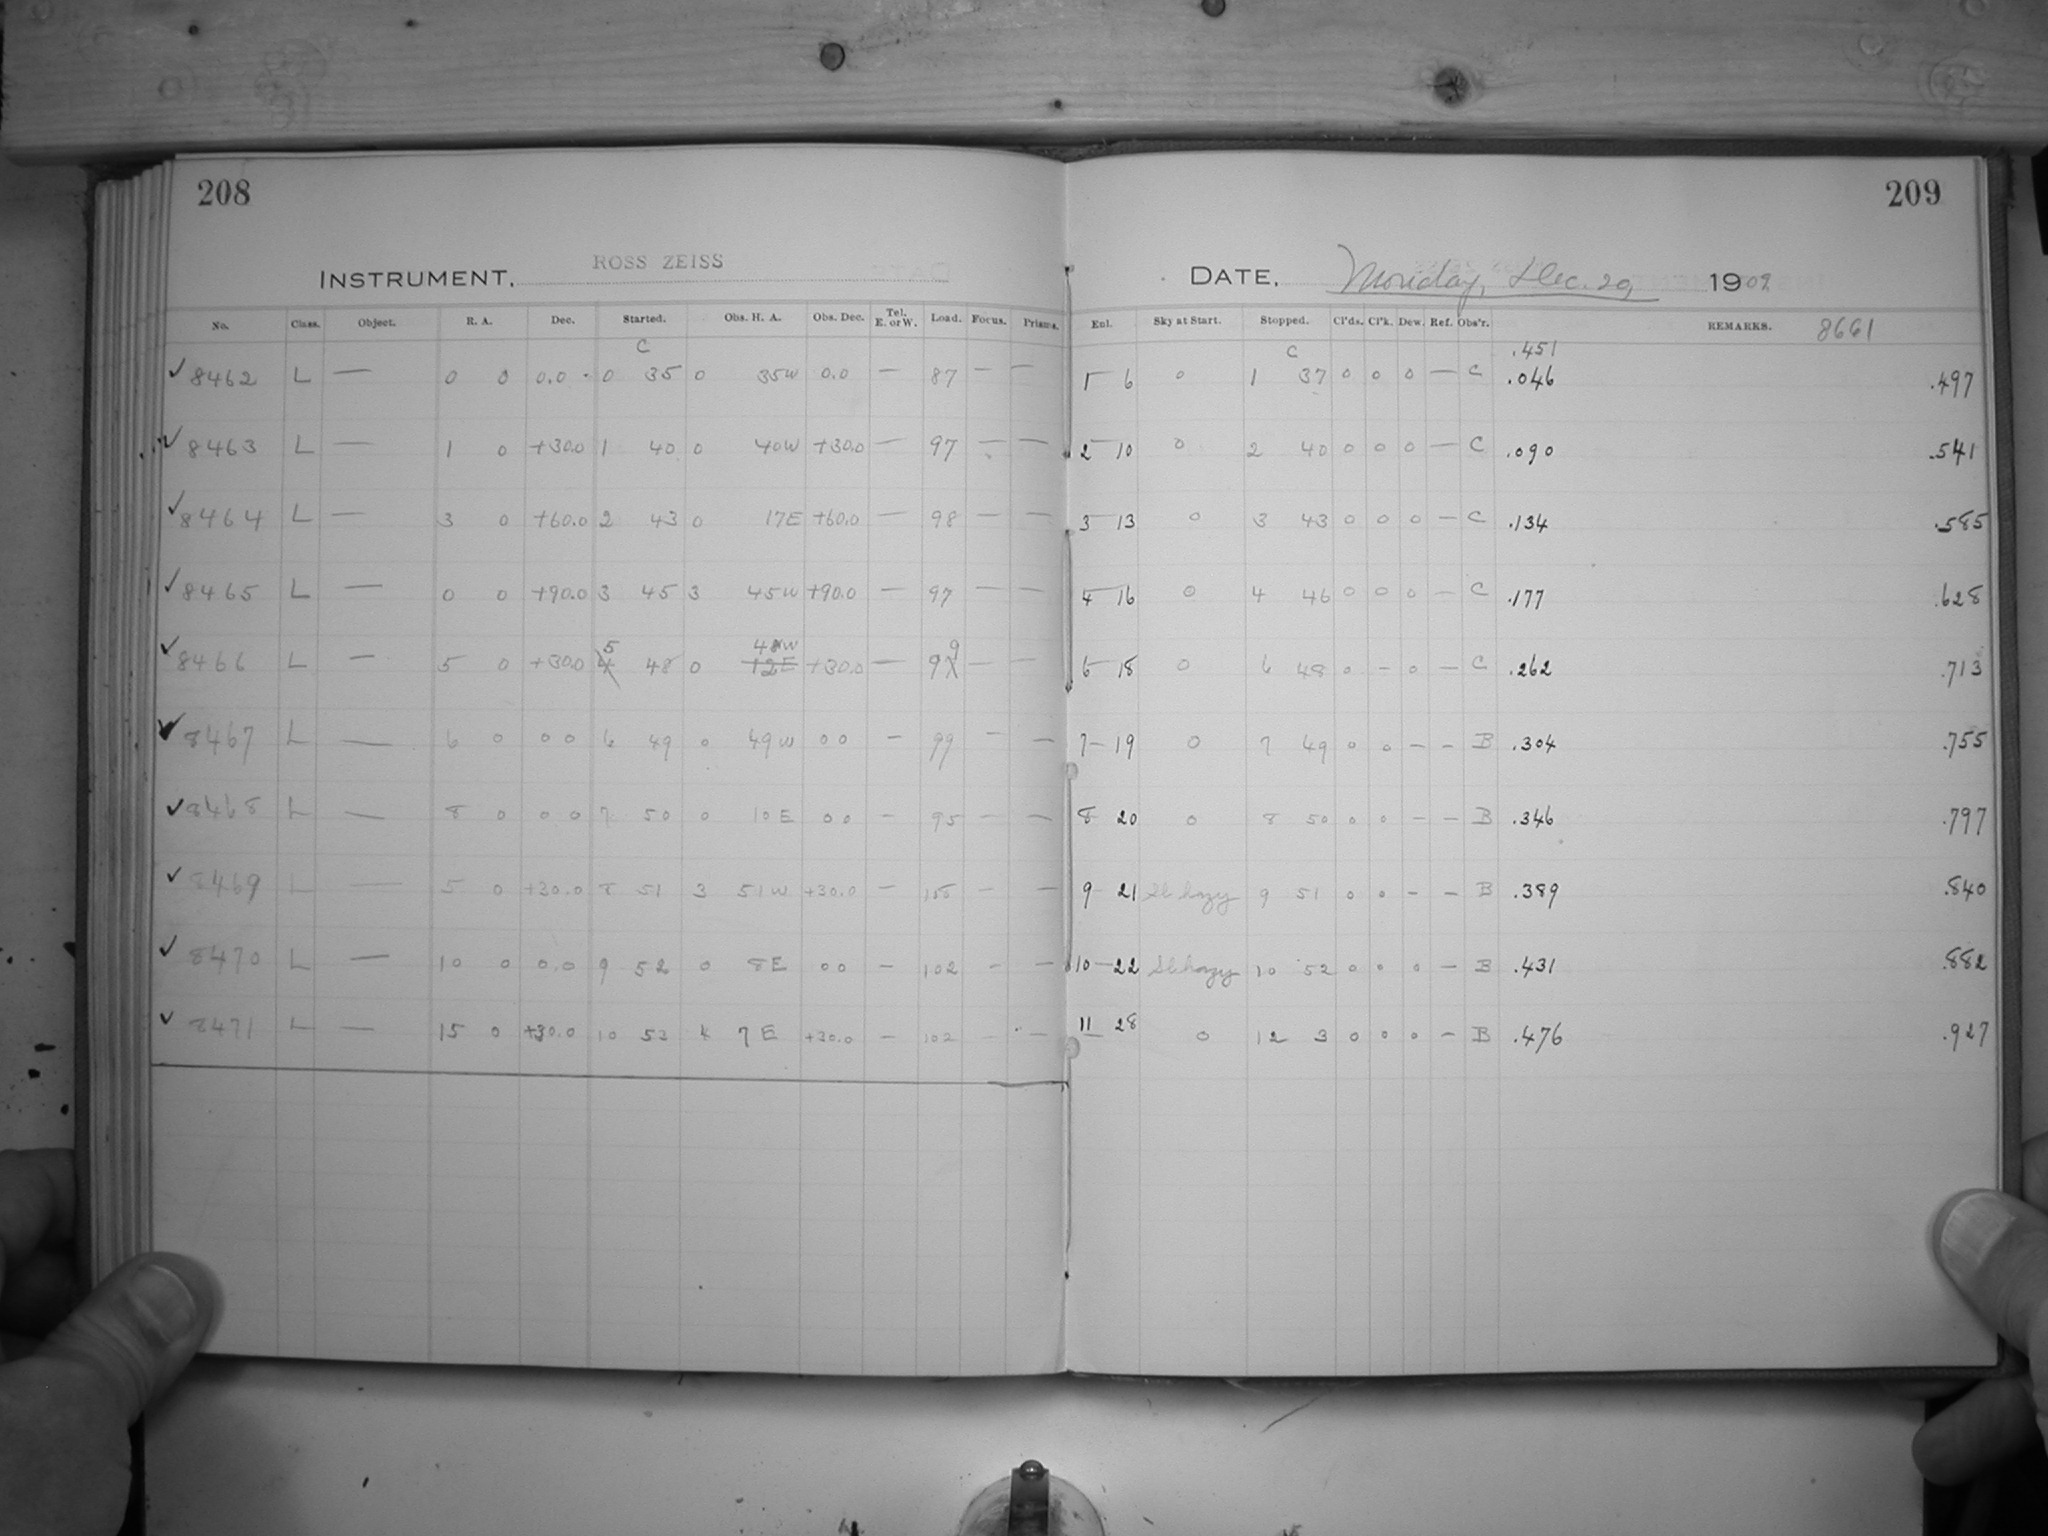 208 209
INSTRUMENT. ROSS ZEISS DATE. Monday, Dec. 20, 1909
No. Class. Object. R. A. Dec. Started. Obs. H. A. Obs. Dec. Tel. E. or W. Load. Focus. Prisms. Enl. Sky at Start. Stopped. Cl'ds. Cl'k. Dew. Ref. Obs'r. REMARKS. 8661
C C .451
✓ 8462 L — 0 0 0.0 0 35 0 35W 0.0 — 87 — — 1 6 0 1 37 0 0 0 — C .046 .497
✓ 8463 L — 1 0 +30.0 1 40 0 40W +30.0 — 97 — — 2 10 0 2 40 0 0 0 — C .090 .541
✓ 8464 L — 3 0 +60.0 2 43 0 17E +60.0 — 98 — — 3 13 0 3 43 0 0 0 — C .134 .585
✓ 8465 L — 0 0 +90.0 3 45 3 45W +90.0 — 97 — — 4 16 0 4 46 0 0 0 — C .177 .628
5 48W 9
✓ 8466 L — 5 0 +30.0 4 48 0 12E +30.0 — 9 — — 6 18 0 6 48 0 - 0 — C .262 .713
✓ 8467 L — 6 0 0 0 6 49 0 49W 0 0 — 99 — — 7 — 19 0 7 49 0 0 — — B .304 .755
✓ 8468 L — 8 0 0 0 7 50 0 10E 0 0 — 95 — — 8 20 0 8 50 0 0 — — B .346 .797
✓ 8469 L — 5 0 +30.0 8 51 3 51W +30.0 — — — 9 21 Sl. hazy 9 51 0 0 — — B .389 .840
✓ 8470 L — 10 0 0.0 9 52 0 8E 0 0 — 102 — — 10 — 22 Sl. hazy 10 52 0 0 0 — B .431 .882
✓ 8471 L — 15 0 +30.0 10 53 4 7E +30.0 — 102 — — 11 28 0 12 3 0 0 0 — B .476 .927